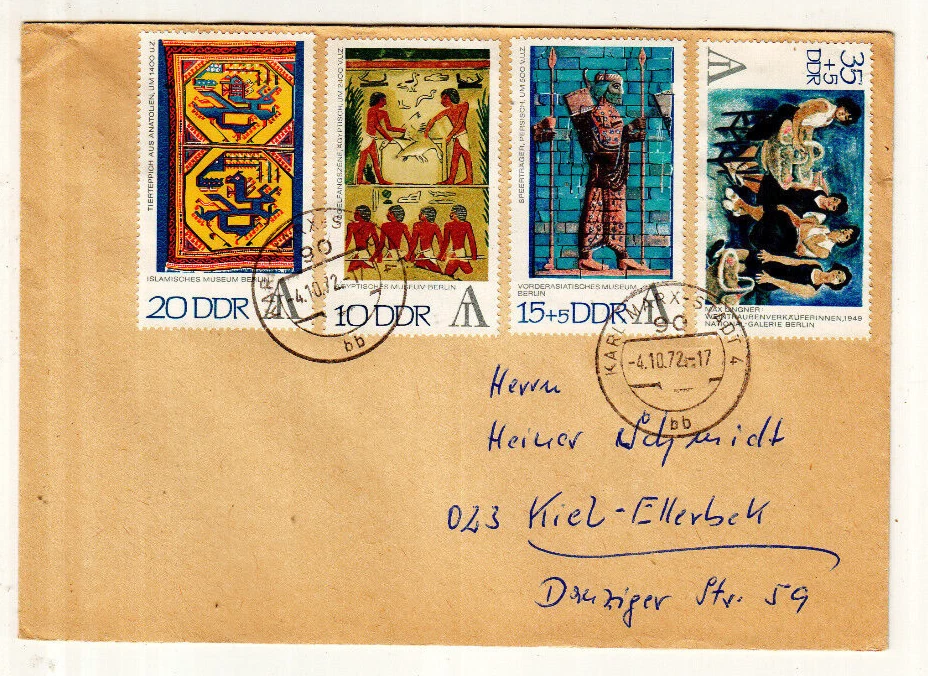 TIERTEPPICH AUS ANATOLIEN, UM 1400 U.Z.
ISLAMISCHES MUSEUM BERLIN
20 DDR
VOGELFANGSZENE, ÄGYPTISCH, UM 2400 V.U.Z.
ÄGYPTISCHES MUSEUM BERLIN
10 DDR
SPEERTRÄGER, PERSISCH, UM 500 V.U.Z.
VORDERASIATISCHES MUSEUM
BERLIN
15+5 DDR
35
+5
DDR
MAX LINGNER:
WEINTRAUBENVERKÄUFERINNEN, 1949
NATIONAL-GALERIE BERLIN
90
-4.10.72
bb
KARL-MARX-STADT 4
90
-4.10.72-17
bb
Herrn
Heiner Schmidt
023 Kiel-Ellerbek
Danziger Str. 59